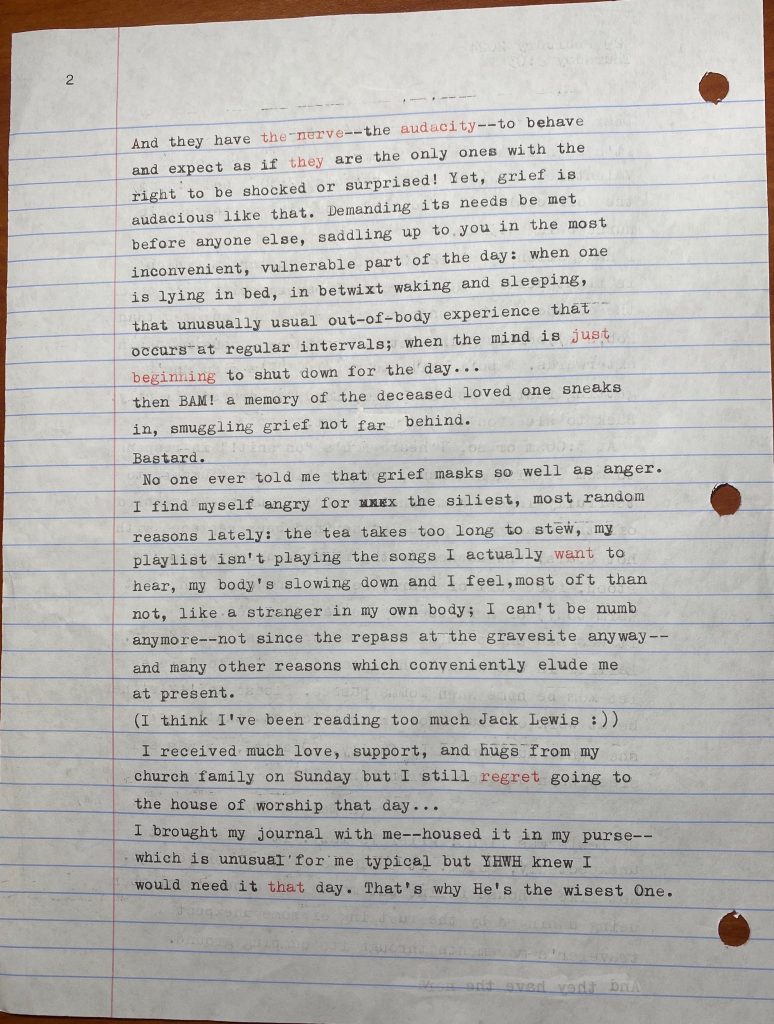 2
And they have the nerve--the audacity--to behave
and expect as if they are the only ones with the
right to be shocked or surprised! Yet, grief is
audacious like that. Demanding its needs be met
before anyone else, saddling up to you in the most
inconvenient, vulnerable part of the day: when one
is lying in bed, in betwixt waking and sleeping,
that unusually usual out-of-body experience that
occurs at regular intervals; when the mind is just
beginning to shut down for the day...
then BAM! a memory of the deceased loved one sneaks
in, smuggling grief not far behind.
Bastard.
No one ever told me that grief masks so well as anger.
I find myself angry for the siliest, most random
reasons lately: the tea takes too long to stew, my
playlist isn't playing the songs I actually want to
hear, my body's slowing down and I feel,most oft than
not, like a stranger in my own body; I can't be numb
anymore--not since the repass at the gravesite anyway--
and many other reasons which conveniently elude me
at present.
(I think I've been reading too much Jack Lewis :))
I received much love, support, and hugs from my
church family on Sunday but I still regret going to
the house of worship that day...
I brought my journal with me--housed it in my purse--
which is unusual for me typical but YHWH knew I
would need it that day. That's why He's the wisest One.